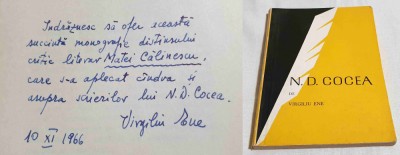 Îndrăznesc să ofer această
succintă monografie distinsului
critic literar Matei Călinescu,
care s-a aplecat cîndva și
asupra scrierilor lui N.D. Cocea.
Virgiliu Ene
10 XI 1966
N. D. COCEA
DE
VIRGILIU ENE